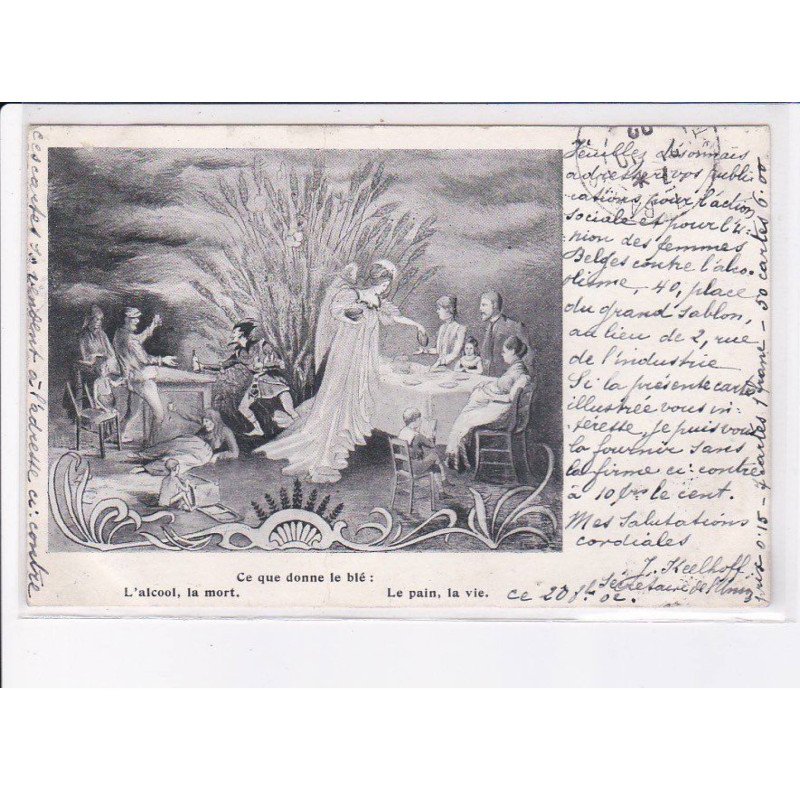 Ce que donne le blé :
L'alcool, la mort. Le pain, la vie.
Veuillez désormais
adresser vos publi-
cations, pour l'action
sociale et pour l'U-
nion des femmes
Belges contre l'alco-
olisme, 40, place
du grand Sablon,
au lieu de 2, rue
de l'industrie
Si la présente carte
illustrée vous in-
téresse, je puis vous
la fournir sans
la firme ci: contre
à 10 frs le cent.
Mes Salutations
cordiales
J. Keelhoff
Secrétaire de l'Union
ce 20 02.
ces cartes se vendent à l'adresse ci: contre
prix 0.15 - cartes 1 franc - 50 cartes 6.00